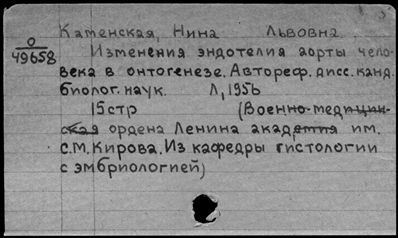 Каменская, Нина Львовна.
О
49658
Изменения эндотелия аорты чело-
века в онтогенезе. Автореф. дисс. канд.
биолог. наук. Л, 1956
15стр (Военно-медицин-
ская ордена Ленина академия им.
С.М. Кирова. Из кафедры гистологии
с эмбриологией)